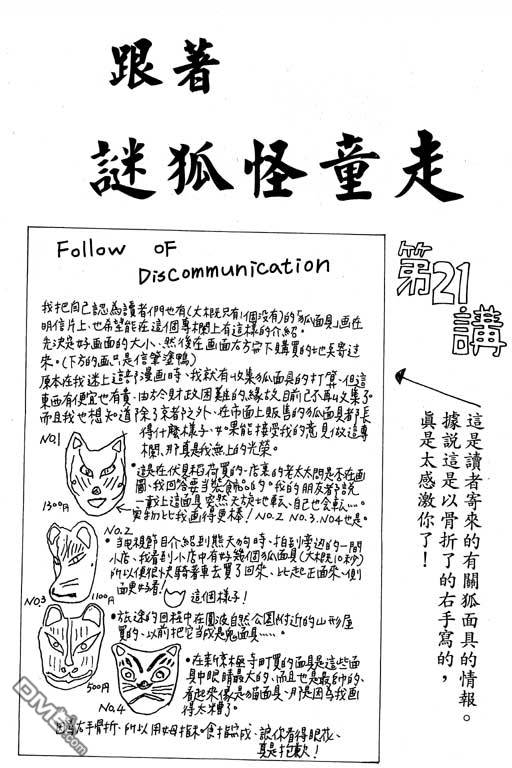 跟著
謎狐怪童走
第21講
Follow OF
Discommunication
我把自己認為讀者們也有(大概只有1個沒有)的「狐面具」画在
明信片上、也希望能在這個專欄上有這樣的介紹。
先決定好画面的大小、然後在画面右方寫下購買的地英寄过
來。(下方的画只是信筆塗鴨)
原本在我迷上這部漫画時、我就有收集狐面具的打算、但這
東西有便宜也有貴、由於財政困難的緣故目前已不再收集了
而且我也想知道除了京都之外、在市面上販售的狐面具都長
得什麼樣子、如果能接受我的意見做這專
欄、那真是我無上的光榮。
No.1
1300円
•這是在伏見稻荷買的、店裏的老太太問是不是在画
圖、我回答要当裝飾品的。我的朋友都說
一戴上這面具突然天旋地転、自己也会転……
實物比我画得更棒！No.2 No.3、No4也是。
No.2
1100円
•当電視節目介紹到熊天狗時、拍到旁边的一間
小店、我看到小店中有好幾個狐面具(大概10秒)
所以便很快騎著車去買了回來、比起正面來、側
面更好看！
這個樣子！
No.3
500円
•旅途的回程中在国波自然公園附近的山形屋
買的、以前把它当成是鬼面具……
No.4
•在新京極寺町買的面具是這些面
具中眼睛最大的、而且也是最帥的、
看起來像是猫面具、那是因為我画
得太糟了。
因為右手骨折、所以用姆指和食指写成、諒你看得眼花、
真是抱歉！
這是讀者寄來的有關狐面具的情報。
據說這是以骨折了的右手寫的，
真是太感激你了！
DM5.com